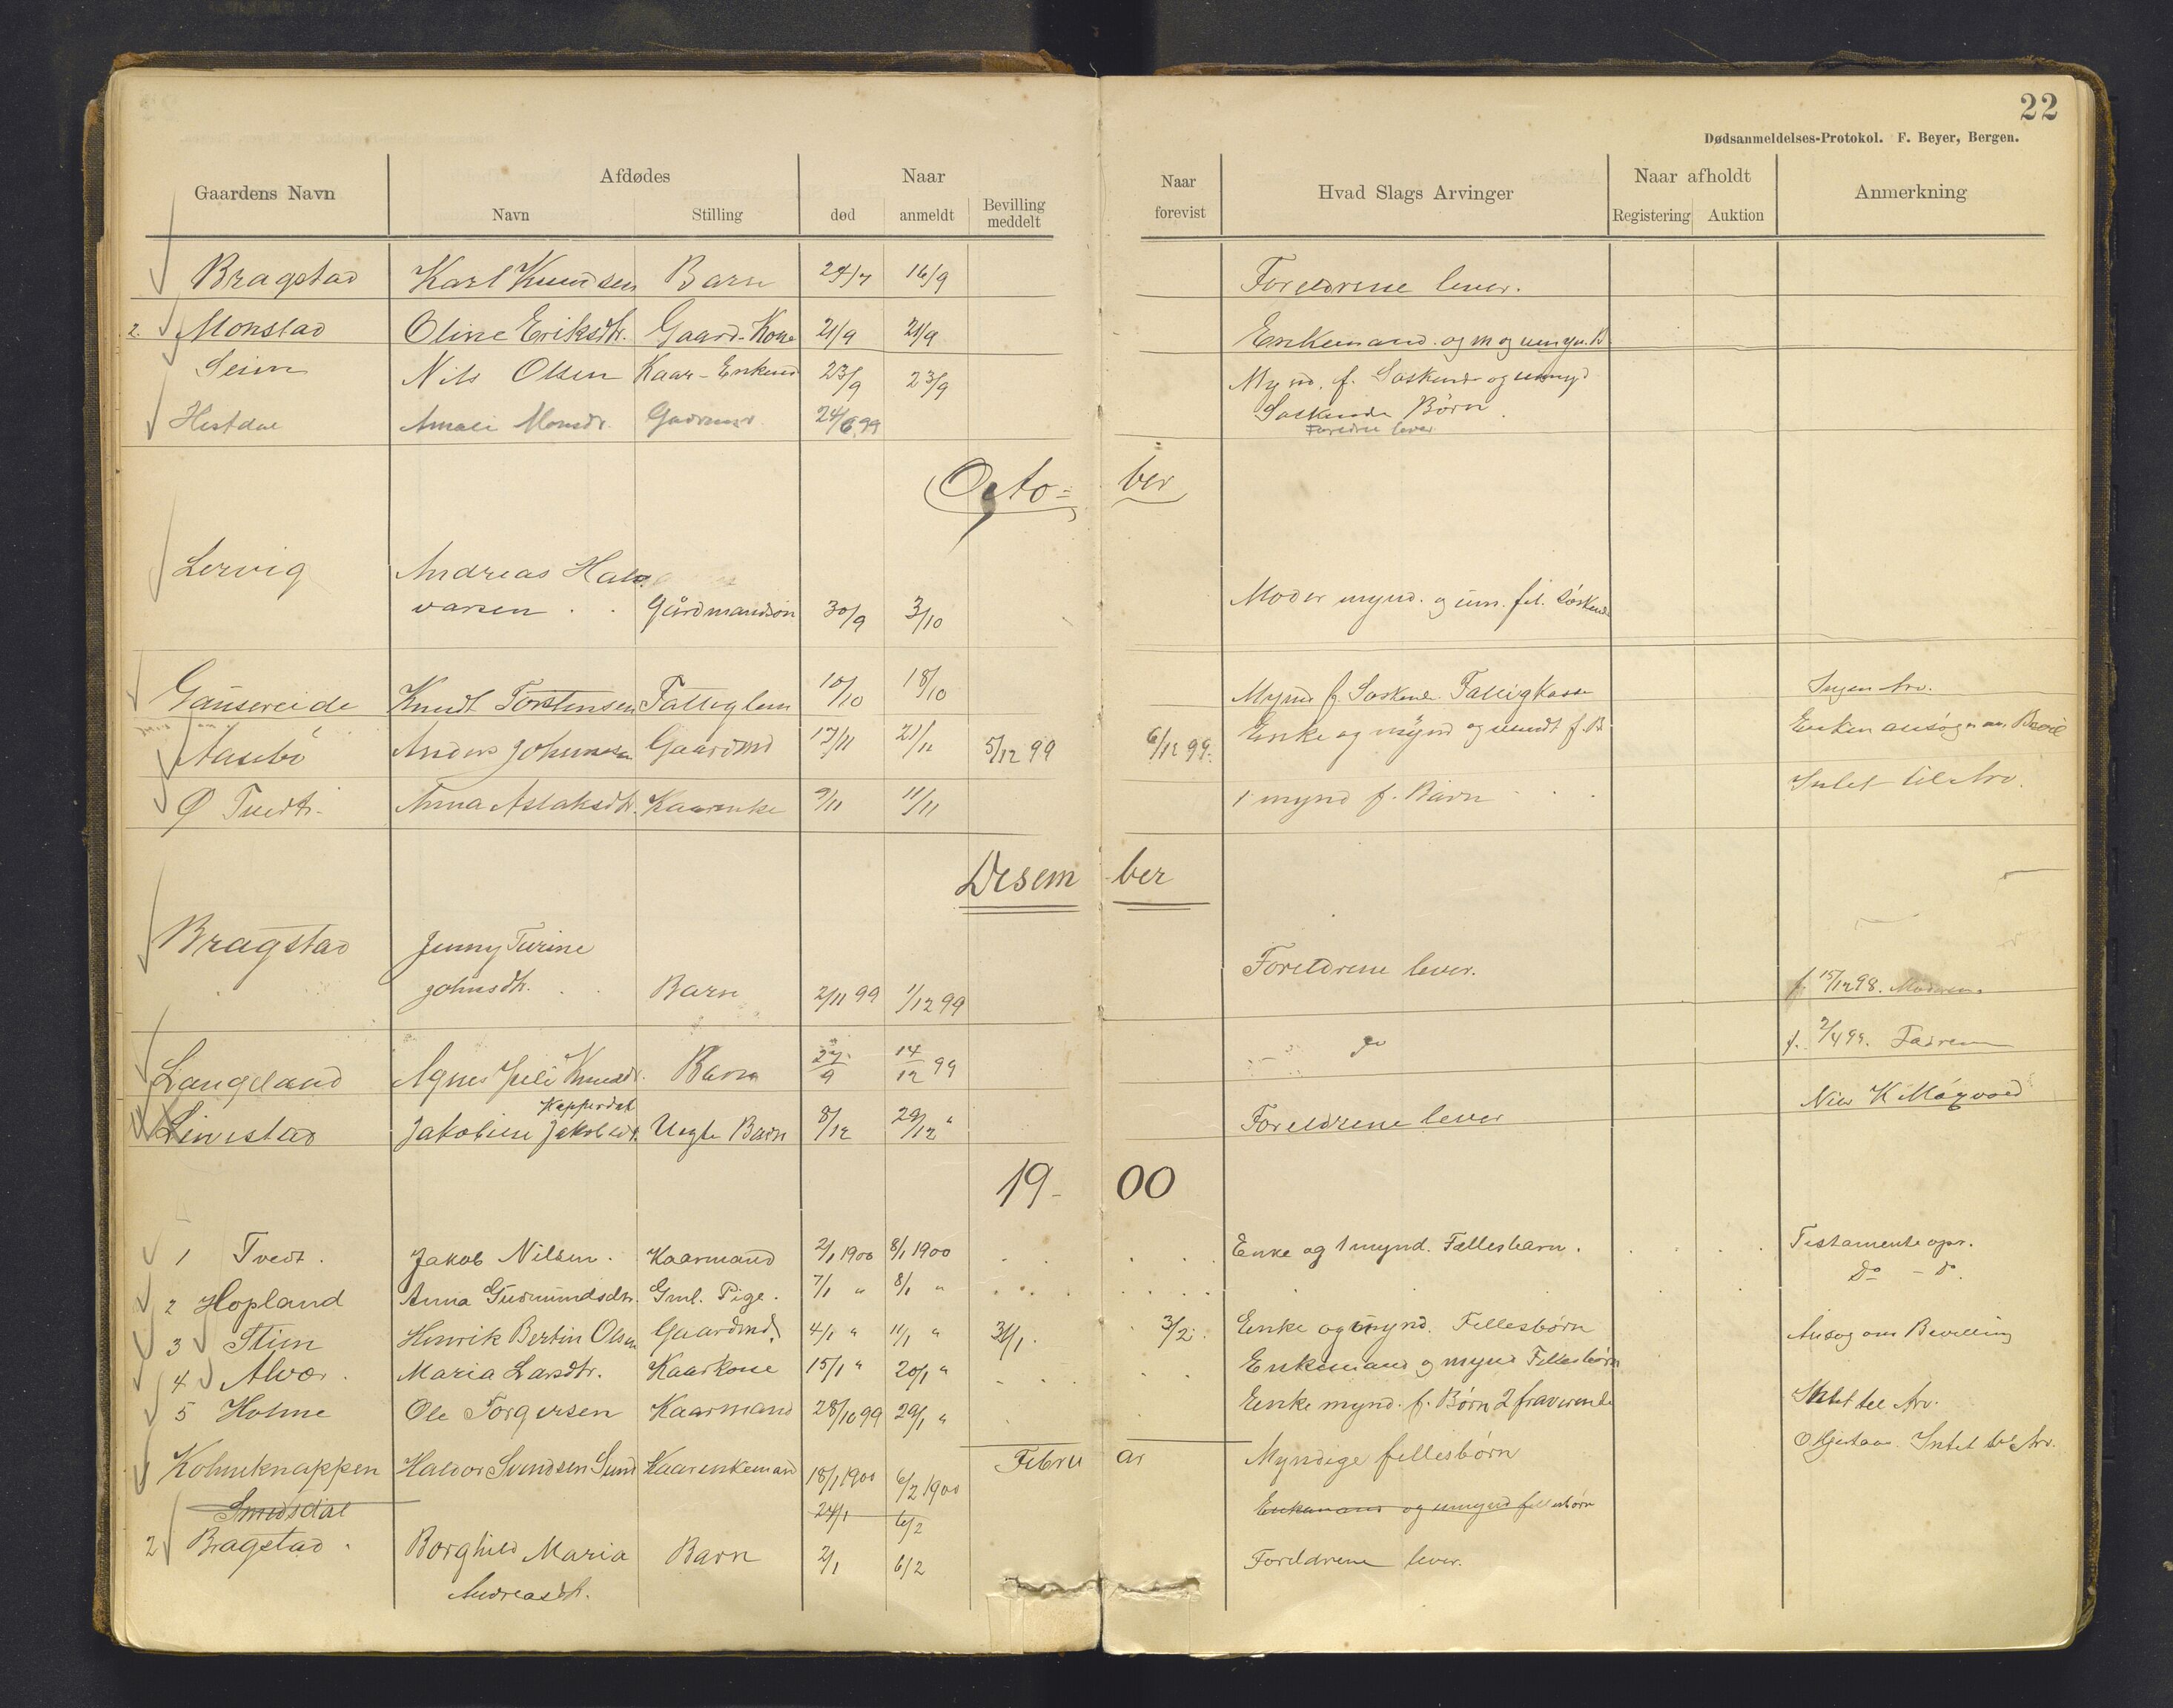 22
Dødsanmeldelses-Protokol. F. Beyer, Bergen.
Gaardens Navn Afdødes Naar Naar Hvad Slags Arvinger Naar afholdt Anmerkning
Navn Stilling død anmeldt Bevilling meddelt forevist Registering Auktion
Bragstad Karl Knudsen Barn 24/7 16/9 Foreldrene lever.
2. Monstad Oline Eriksdtr. Gaard-Kone 21/9 21/9 Enkemand. og m og umyn. B
Seim Nils Olsen Kaar-Enkem 23/9 23/9 Mynd. f. Søskende og umynd
Søskende Børn.
Hestdal Amali Monsdr. 24/6 99 Foreldre lever
Octo= ber
Lervig Andreas Hal
varsen . . Gårdmandsøn 30/9 3/10 Moder mynd. og um. fel. Søskende
Gausereide Knudt Torstensen Fattiglem 10/10 18/10 Mynd f. Søskende. Fattigkasse Ingen Arv.
Aasebø Anders Johannesen Gaardmd 17/11 21/11 5/12 99 6/12 99. Enke og mynd og umdt f. B Enken ansøger om Bevil
Ø Tvedt. Anna Aslaksdtr. Kaarenke 9/11 11/11 1 mynd f. Barn Intet til Arv.
Desem ber
Bragstad Jenny Turine
Johnsdtr. . . Barn 2/11 99 1/12 99 Foreldrene lever. f. 15/12 98. Moderen.
Langeland Agnes Knudsdr. Barn 27/9 14/12 99 do f. 2/4 99. Faderen
Kapperdal
Linistad Jakobine Jakobsdt. Uegte Barn 8/12 29/12 " Foreldrene lever Nils K Mogvosed
19- 00
1 Tvedt. Jakob Nilsen. Kaarmand 2/1 1900 8/1 1900 Enke og 1 mynd. Fællesbarn. Testamente opr.
2 Hopland Anna Gudmundsdtr. Gml. Pige. 7/1 " 8/1 " Do - do.
3 Stim Henrik Bertin Olsen Gaardmd. 4/1 " 11/1 " 31/1. 3/2. Enke og mynd. Fellesbørn Ansøg om Bevilling
4 Alver. Maria Larsdtr. Kaarkone 15/1 " 20/1 " Enkemand og mynd Fellesbørn
5 Holme Ole Torgersen Kaarmand 28/10 99 29/1 " Enke mynd. f. Børn 2 fraverende Intet til Arv.
Febru ar
Kolmeknappen Haldor Svendsen Sund Kaarenkemand 18/1 1900 6/2 1900 Myndige fellesbørn O Hjertaas. Intet til Arv.
Smidsdal 24/1 6/2 Enkemand og umynd fellesbørn
2 Bragstad. Borghild Maria Barn 2/1 6/2 Foreldrene lever.
Andreasdt.